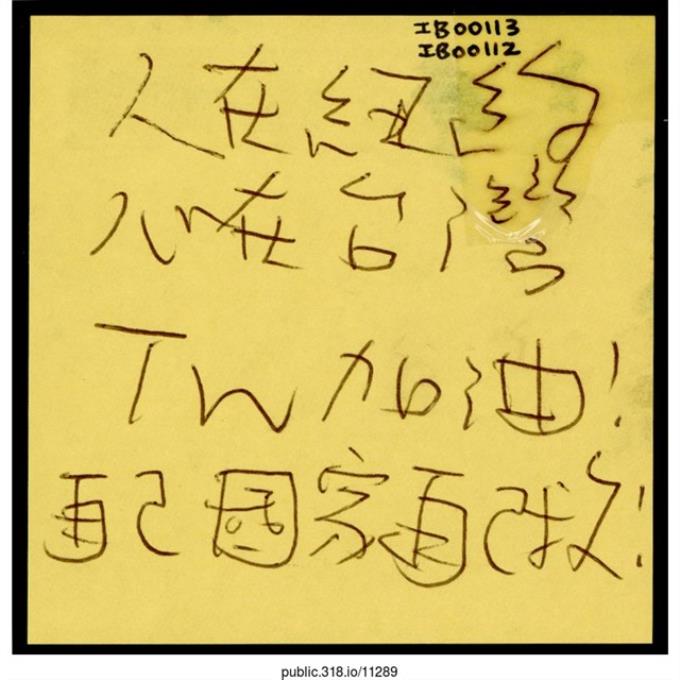 IB00113
IB00112
人在紐約
心在台灣
TW加油!
自己國家自己救!
public.318.io/11289